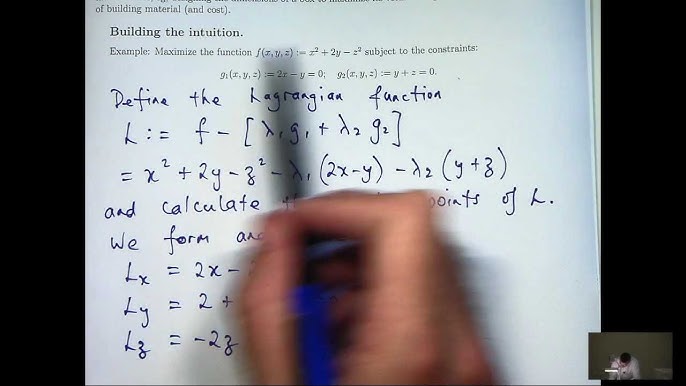 of building material (and cost).
Building the intuition.
Example: Maximize the function f(x, y, z) := x² + 2y − z² subject to the constraints:
g₁(x, y, z) := 2x − y = 0; g₂(x, y, z) := y + z = 0.
Define the Lagrangian function
L := f − [λ₁g₁ + λ₂g₂]
= x² + 2y − z² − λ₁(2x−y) − λ₂(y+z)
and calculate points of L.
We form and
Lx = 2x −
Ly = 2 +
Lz = −2z